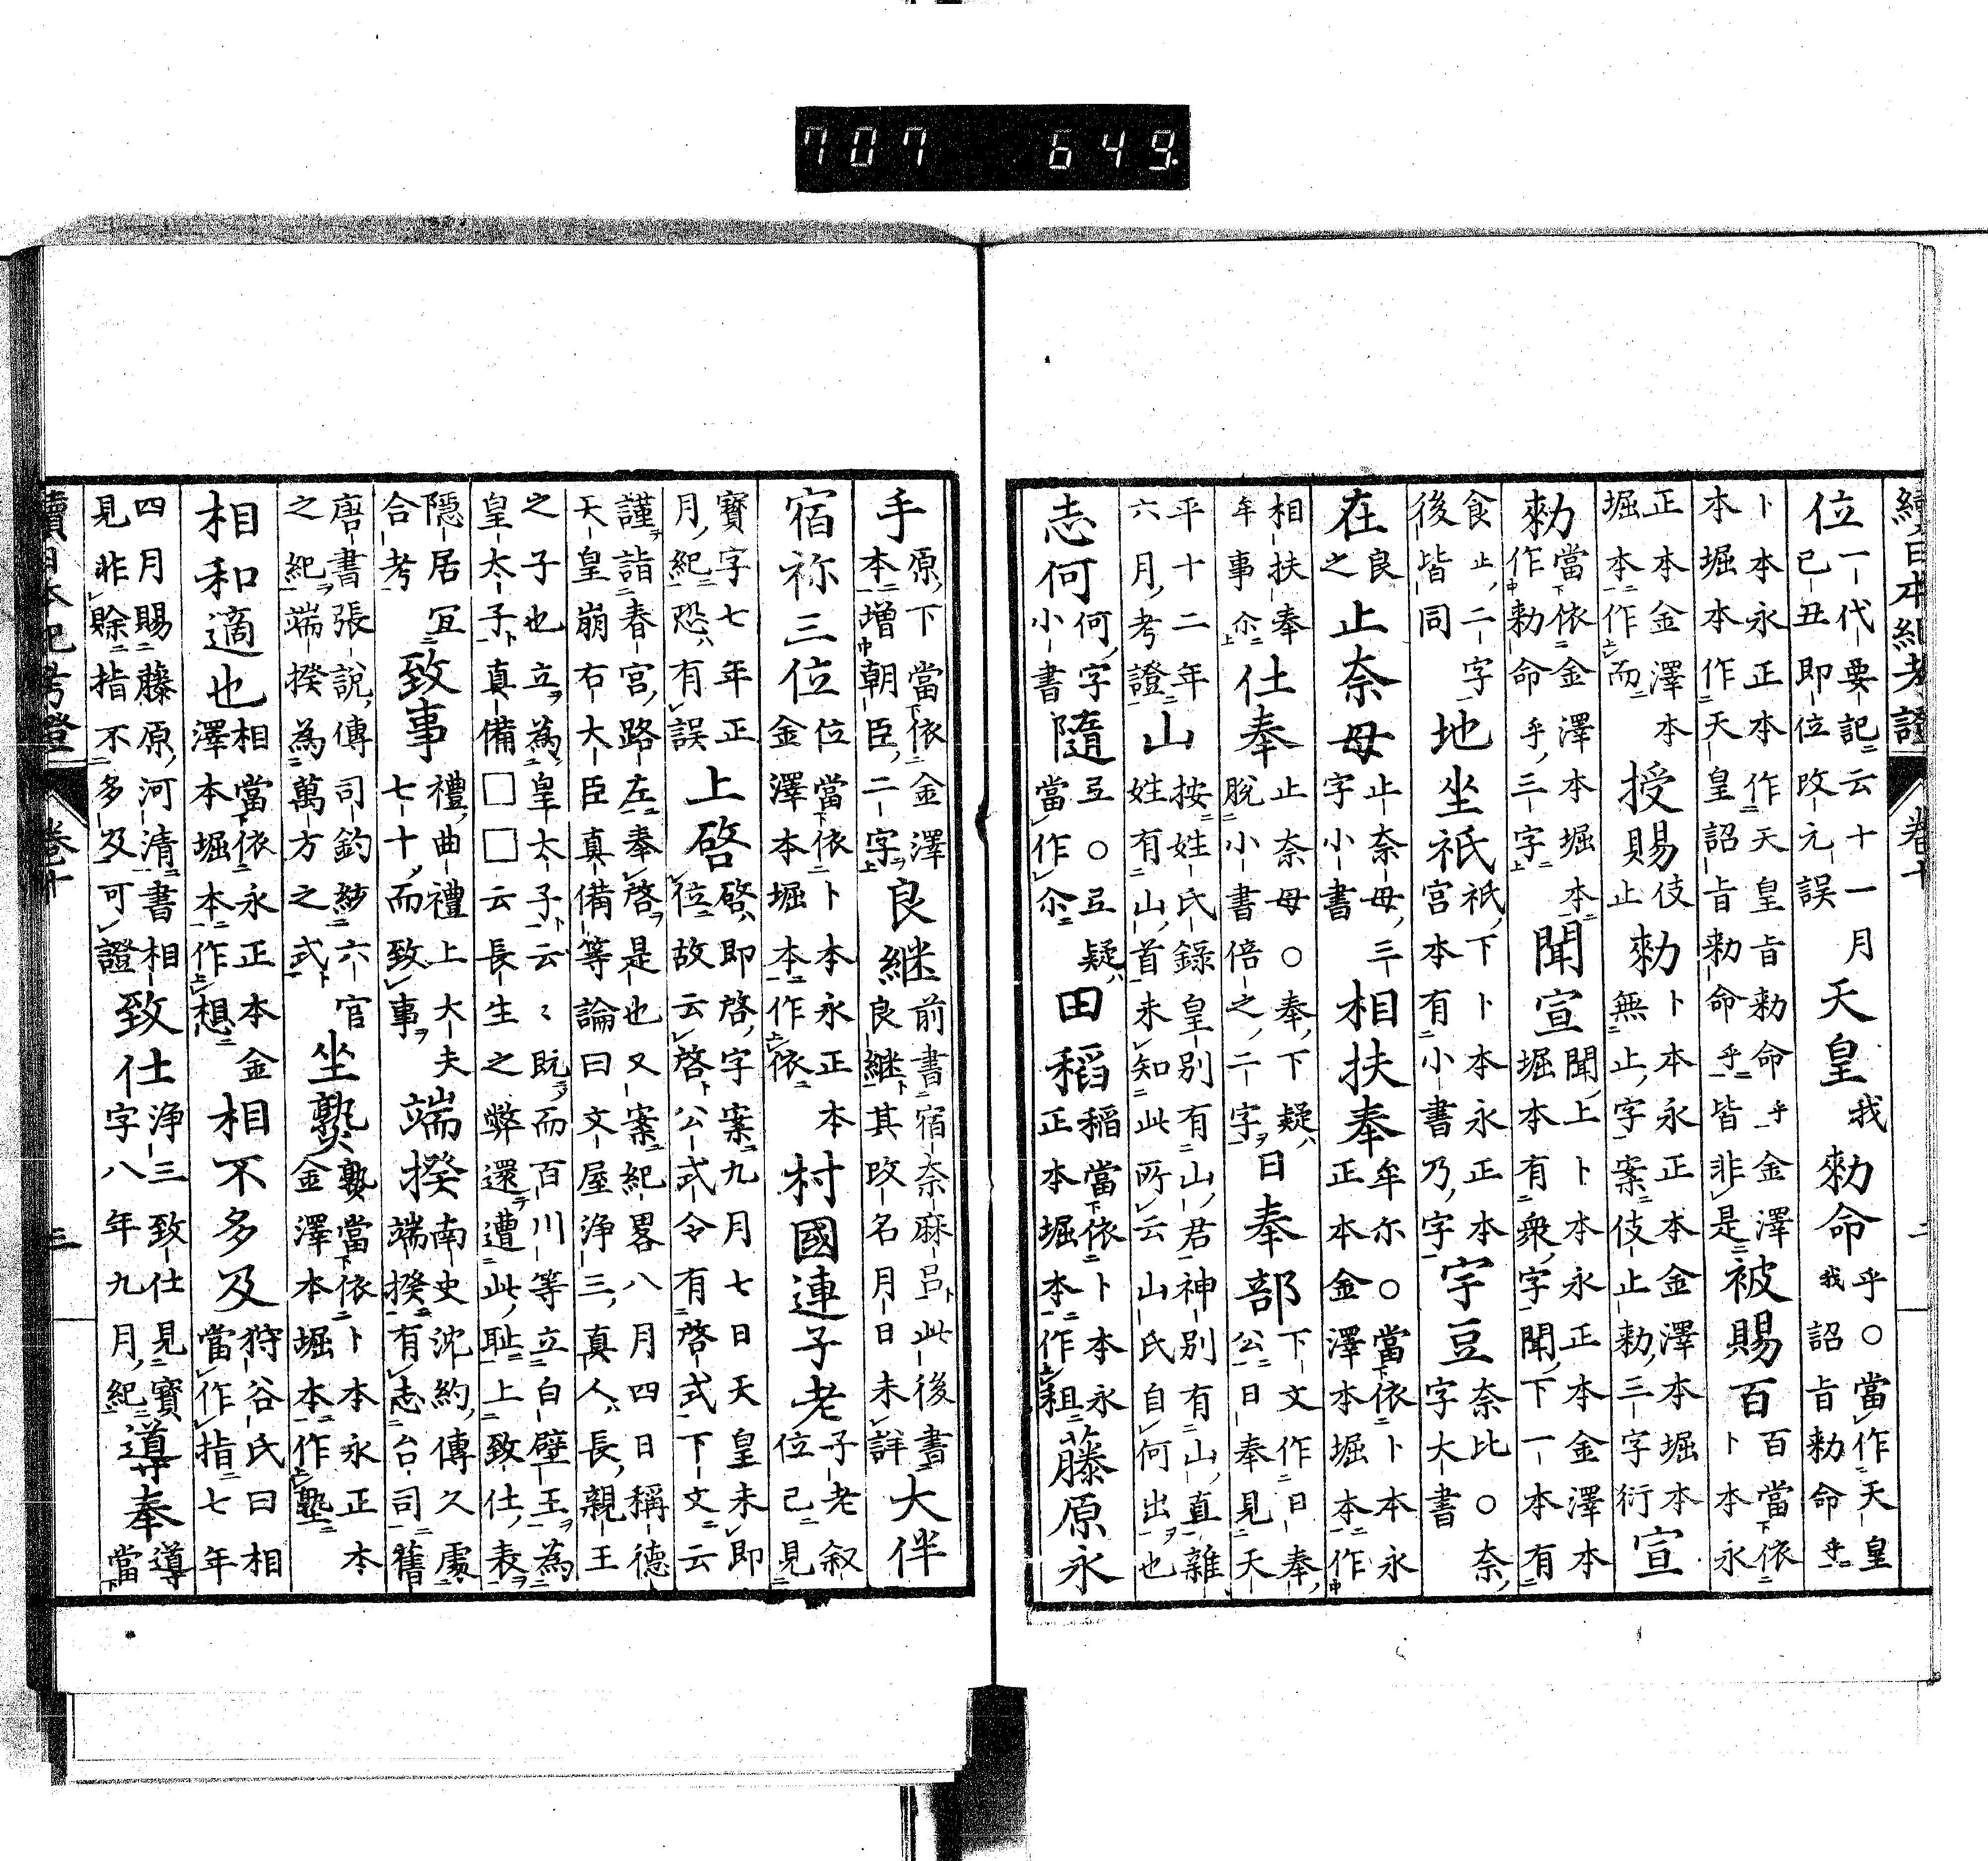 續日本紀考證 卷十 二
位一代要記云十一月已丑即位改元誤天皇我勅命乎○當作天皇我詔旨勅命乎
卜本永正本作天皇旨勅命乎金澤本堀本作天皇詔旨勅命乎皆非是被賜百百當依卜本永
正本金澤本堀本作而授賜伎止勅卜本永正本金澤本堀本無止字案伎止勅三字衍宣
勅當依金澤本堀本作勅命乎三字聞宣聞上卜本永正本金澤本堀本有衆字聞下一本有
食止二字後皆同地坐祇祇下卜本永正本宮本有小書乃字宇豆奈比○奈字大書
在良之止奈母止奈母三字小書相扶奉牟尓○當依卜本永正本金澤本堀本作
相扶奉牟事尒仕奉止奈母○奉下疑脫小書倍之二字日奉部下文作日奉公日奉見天
平十二年六月考證山按姓氏錄皇別有山君神別有山直雜姓有山首未知此所云山氏自何出也
志何何字小書隨五○五疑當作尒田稻稻當依卜本永正本堀本作租藤原永
手原下當依金澤本增朝臣二字良継前書宿奈麻呂此後書良継其改名月日未詳大伴
宿祢三位位當依卜本永正本金澤本堀本作依村國連子老子老叙位已見
寶字七年正月紀恐有誤上啓啓即啓字案九月七日天皇未即位故云啓公式令有啓式下文云
謹詣春宮路左奉啓是也又案紀畧八月四日稱德天皇崩右大臣真備等論曰文屋浄三真人長親王
之子也立為皇太子云〻既而百川等立白壁王為皇太子真備□□云長生之弊還遭此耻上致仕表
隱居宜合考致事禮曲禮上大夫七十而致事端揆南史沈約傳久處端揆有志台司舊
唐書張說傳司鈞緫六官之紀端揆為萬方之式坐當依卜本永正本金澤本堀本作塾
相和適也相當依永正本金澤本堀本作想相不多及狩谷氏曰相當作指七年
四月賜藤原河清書相見非賖指不多及可證致仕浄三致仕見寶字八年九月紀導奉導當
續日本紀考證 卷十 三
707 649.